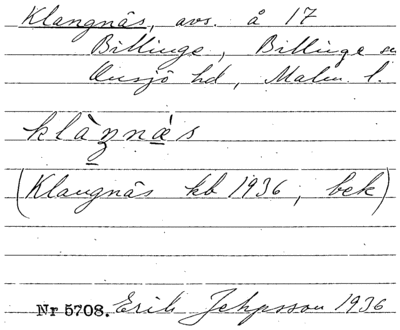 Klangnäs, avs. å 17
Billinge, Billinge sn
Onsjö hd, Malm. l.
klàŋnä́s
(Klangnäs kb 1936, bek)
Nr 5708. Erik Jeppsson 1936